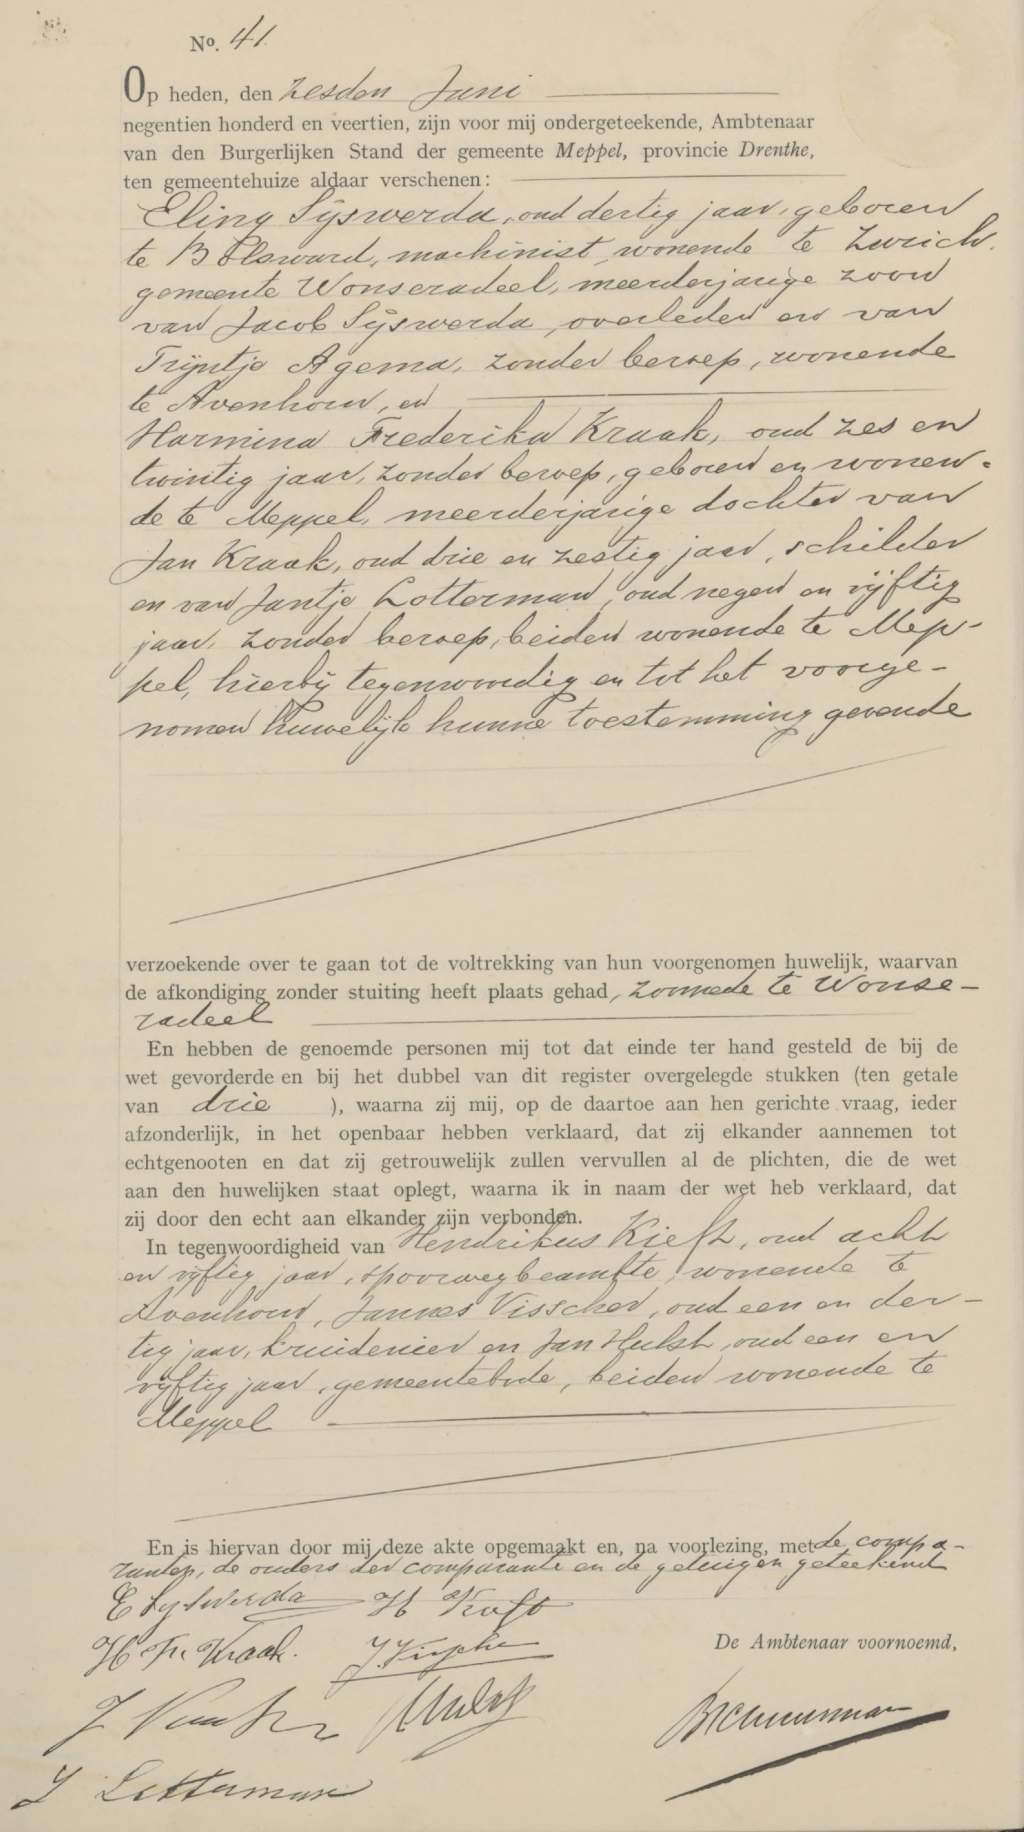 No. 41.
Op heden, den zesden Juni
negentien honderd en veertien, zijn voor mij ondergeteekende, Ambtenaar
van den Burgerlijken Stand der gemeente Meppel, provincie Drenthe,
ten gemeentehuize aldaar verschenen:
Eling Sijswerda, oud dertig jaar, geboren
te Bolsward, machinist, wonende te Zurich,
gemeente Wonseradeel, meerderjarige zoon
van Jacob Sijswerda, overleden en van
Trijntje Agema, zonder beroep, wonende
te Avenhorn, en
Harmina Frederika Kraak, oud zes en
twintig jaar, zonder beroep, geboren en wonen-
de te Meppel, meerderjarige dochter van
Jan Kraak, oud drie en zestig jaar, schilder
en van Jantje Lotterman, oud negen en vijftig
jaar, zonder beroep, beiden wonende te Mep-
pel, hierbij tegenwoordig en tot het voorge-
nomen huwelijk hunne toestemming gevende
verzoekende over te gaan tot de voltrekking van hun voorgenomen huwelijk, waarvan
de afkondiging zonder stuiting heeft plaats gehad, zoomede te Wonse-
radeel
En hebben de genoemde personen mij tot dat einde ter hand gesteld de bij de
wet gevorderde en bij het dubbel van dit register overgelegde stukken (ten getale
van drie ), waarna zij mij, op de daartoe aan hen gerichte vraag, ieder
afzonderlijk, in het openbaar hebben verklaard, dat zij elkander aannemen tot
echtgenooten en dat zij getrouwelijk zullen vervullen al de plichten, die de wet
aan den huwelijken staat oplegt, waarna ik in naam der wet heb verklaard, dat
zij door den echt aan elkander zijn verbonden.
In tegenwoordigheid van Hendrikus Kieft, oud acht
en vijftig jaar, spoorwegbeambte, wonende te
Avenhorn, Jannes Visscher, oud een en der-
tig jaar, kruidenier en Jan Hulst, oud een en
vijftig jaar, gemeentebode, beiden wonende te
Meppel
En is hiervan door mij deze akte opgemaakt en, na voorlezing, met de compa-
ranten, de ouders der comparante en de getuigen geteekend
E Sijswerda H Kieft
H. Fr. Kraak. J. Visscher
J Kraak Hulst
De Ambtenaar voornoemd,
J Lotterman